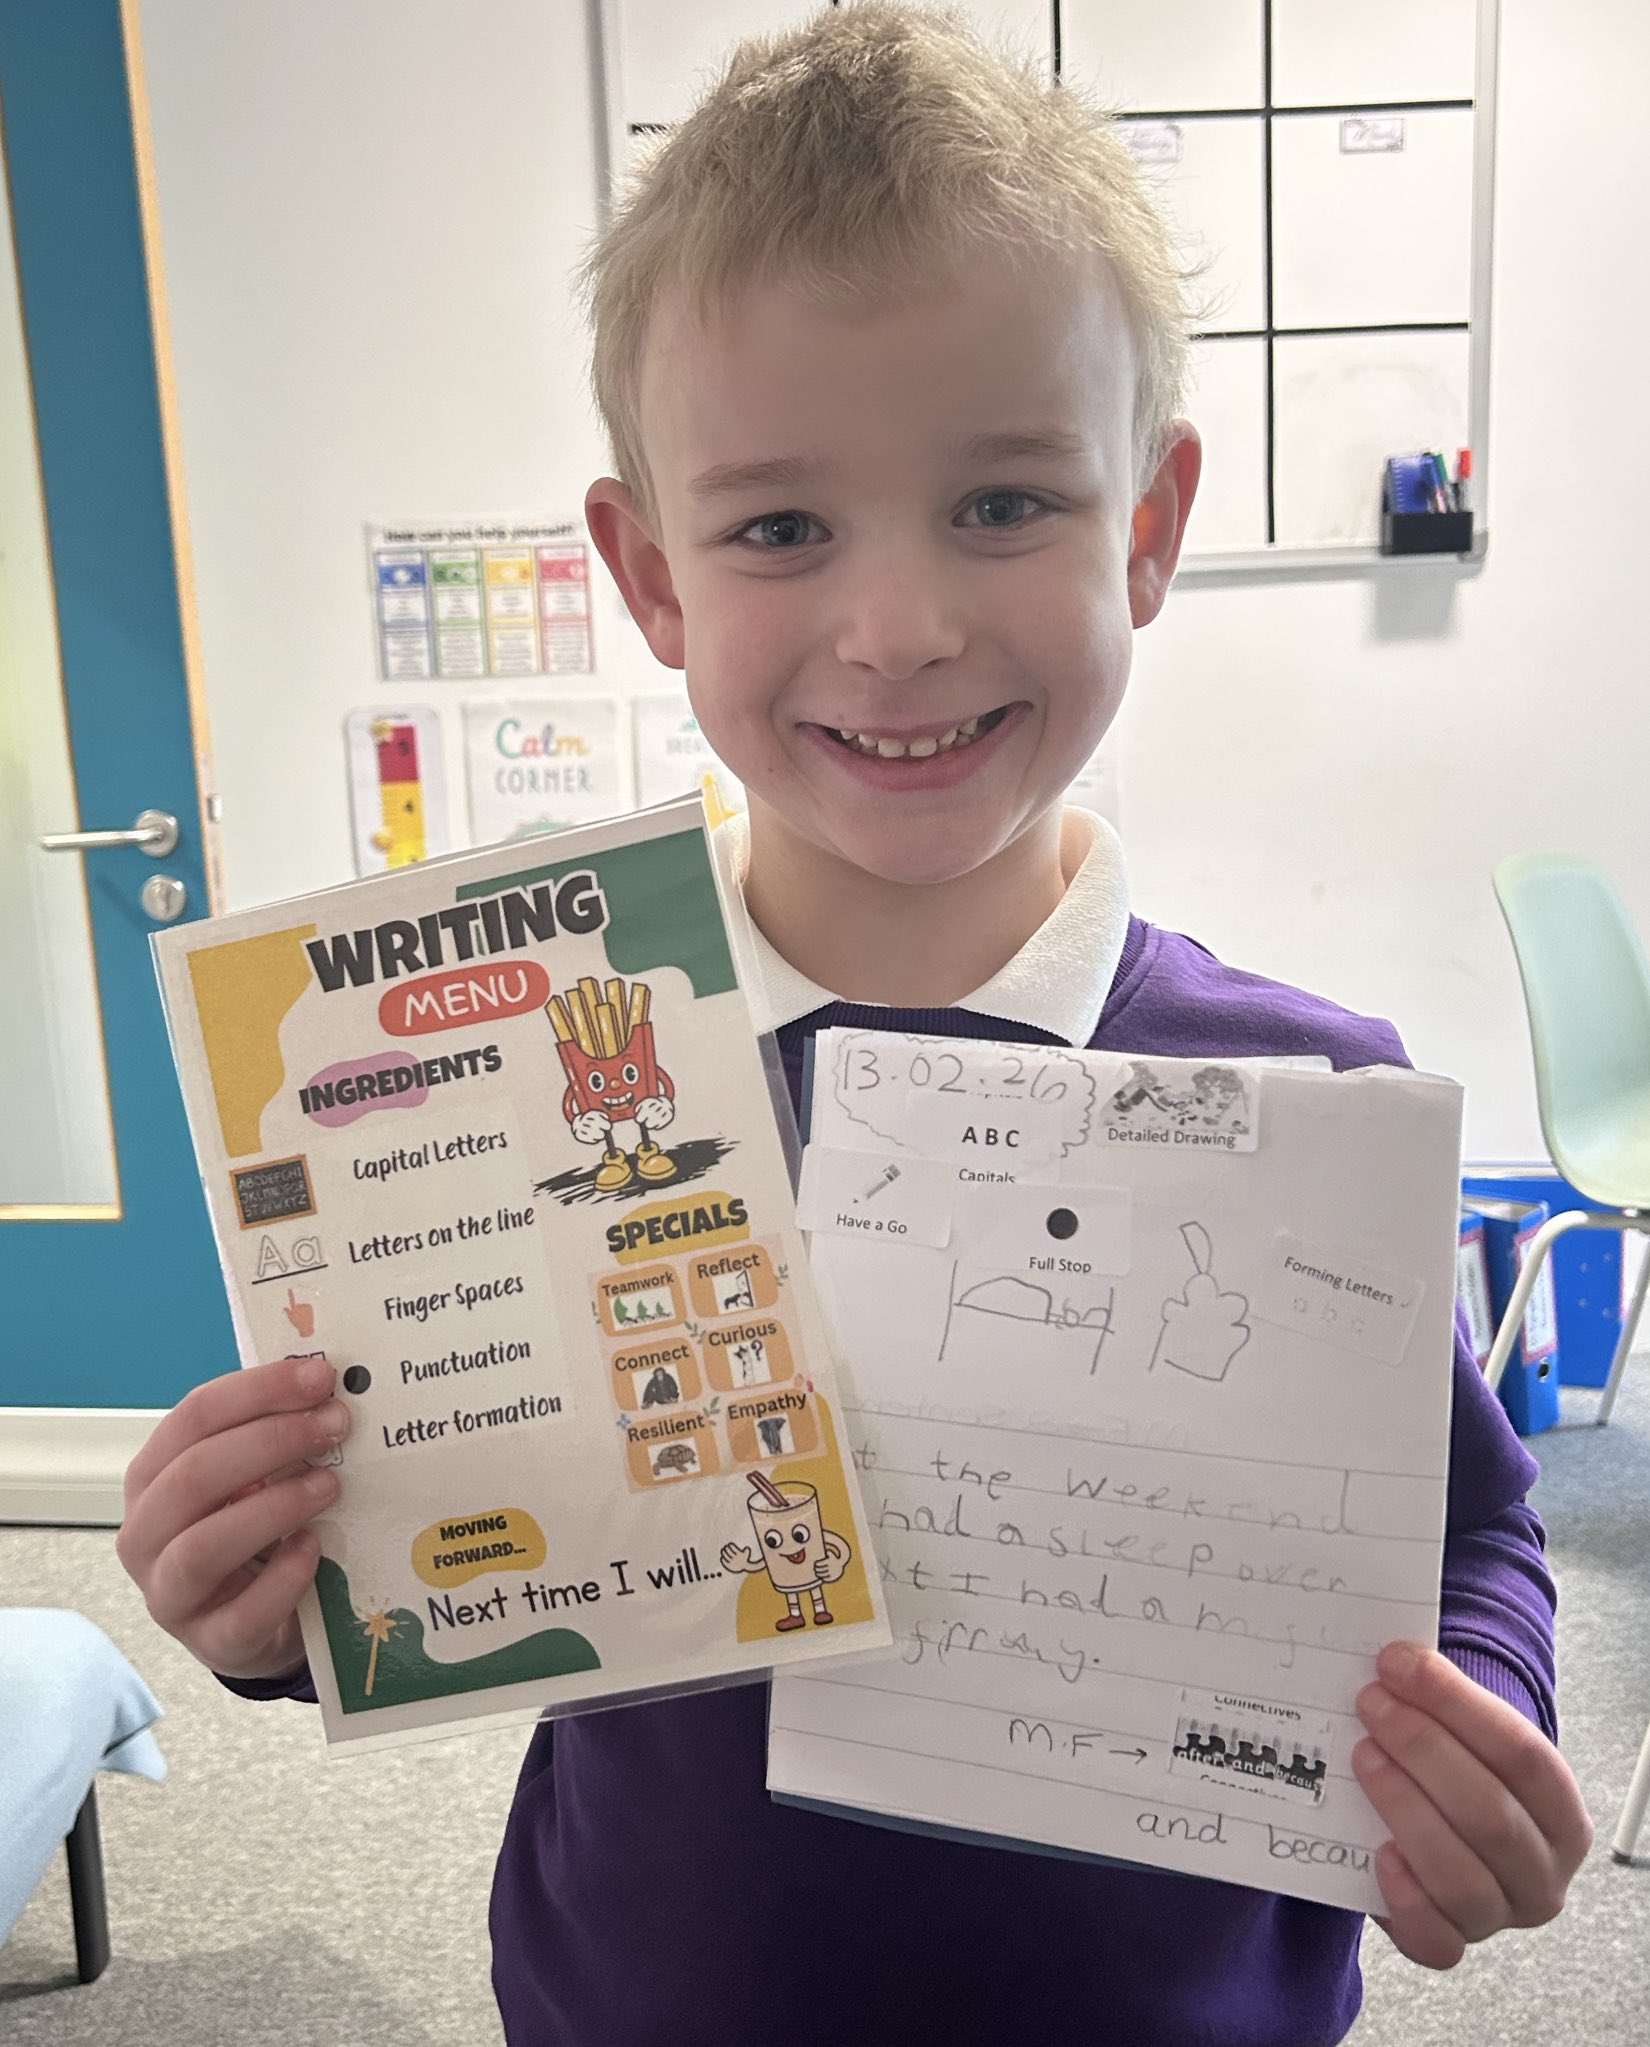 How can you help yourself?
5
4
Calm
CORNER
WRITING
MENU
INGREDIENTS
Capital Letters
Letters on the line
Finger Spaces
Punctuation
Letter formation
SPECIALS
Teamwork
Reflect
Connect
Curious
Resilient
Empathy
MOVING
FORWARD...
Next time I will...
ABCDEFGHI
JKLMNOPQR
STUVWXYZ
Aa
13.02.26
A B C
Capitals
Detailed Drawing
Have a Go
Full Stop
Forming Letters
the weekend
had a sleep over
I had a
M.F →
Connectives
after and because
and becau